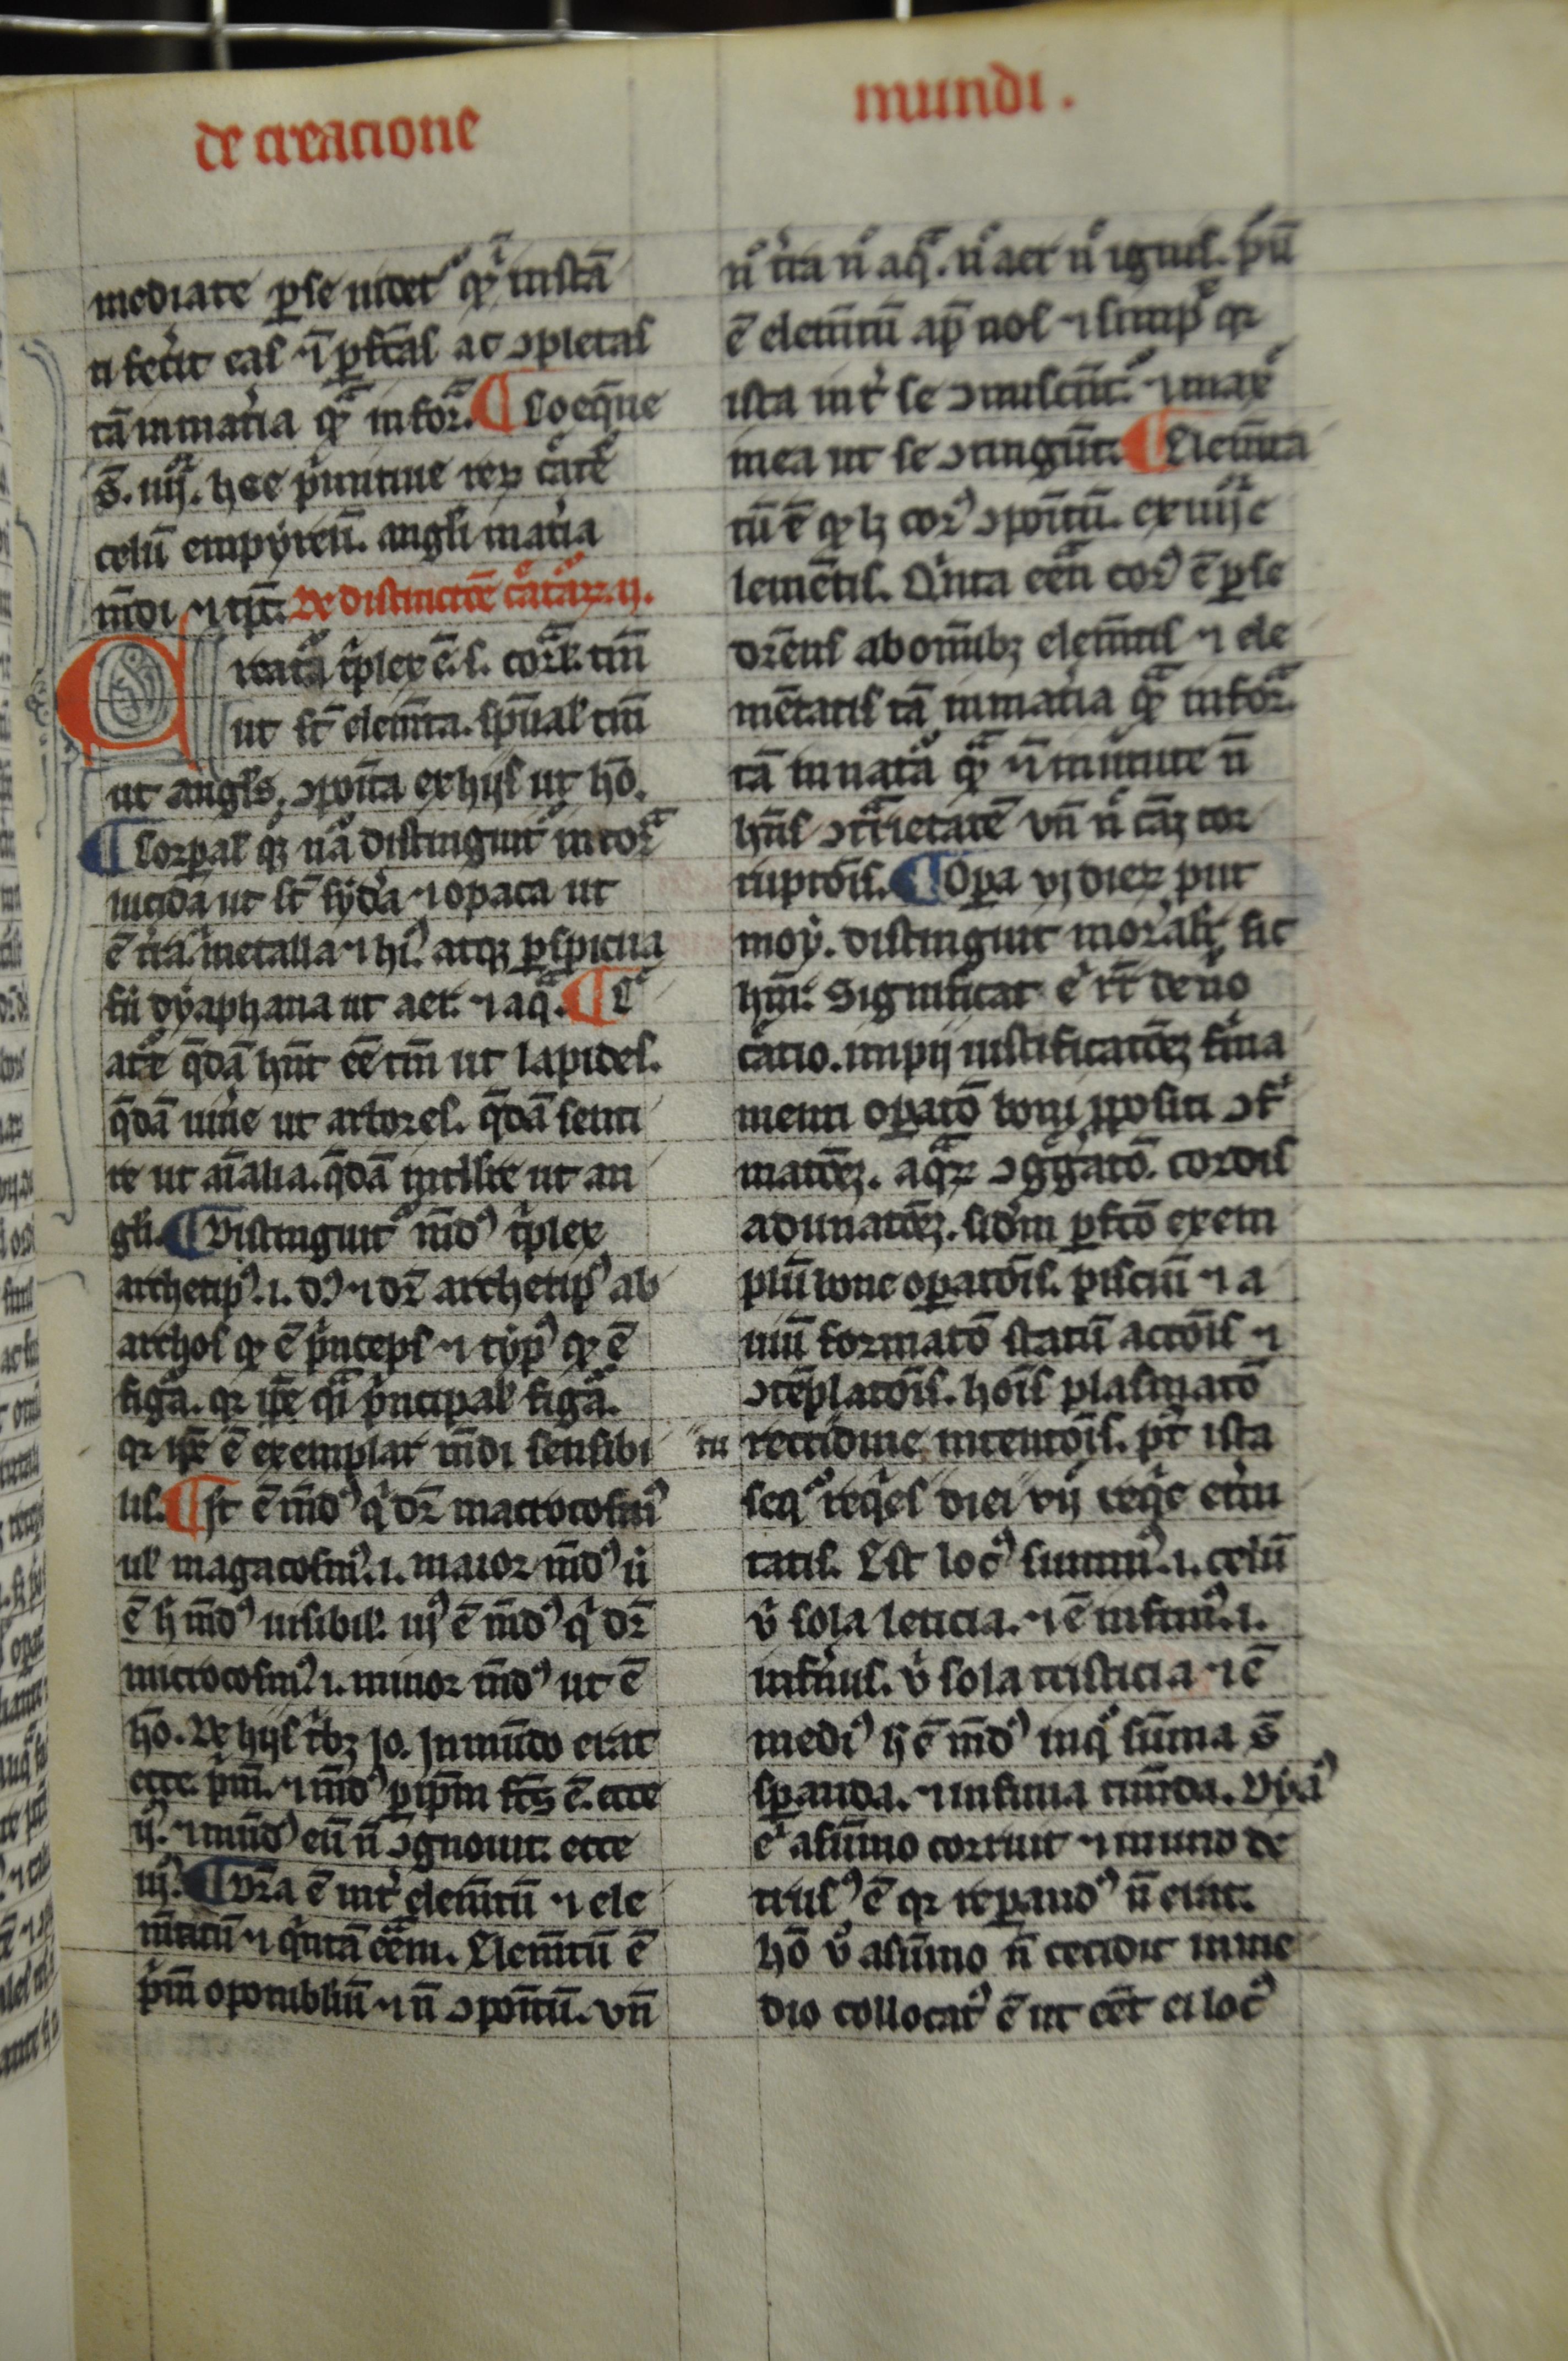 de creacione
mundi.
mediate ꝑ se uidet᷑ qꝛ̉ in istā
ti fecit eas ⁊ ī ꝑfc̄as ac ↄpletas
tā in mat̉ia qͣ̄ in forͣ. ¶ Coeq̄ue
sͭ. iiijͦꝛ. hee pͥmitiue reꝝ cͣate
celū empyreū. angli mat̉ia
m̄di ⁊ tp̄s. De distinctōe cͣaturaꝝ. ij.
Creatͣ tͥplex ē. s. corꝑal̓ tm̄
ut st̄ elem̄ta. sp̄ual̓ tm̄
ut angl̓s, ↄpoīta ex hijs ut hō.
¶ Corꝑal̓ qꝫ nͣ distinguit᷑ in corꝑͣ
lucida ut st̄ sydͣa ⁊ opaca ut
ē tr̉a. metalla ⁊ hi᷒. atqꝫ ꝑspicua
siū dyaphana ut aer. ⁊ aqͣ. ¶ Cͤ
atͬe q̄dā hn̄t ēē tm̄ ut lapides.
q̄dā uiu̓e ut arbores. q̄dā senti
re ut aīalia. q̄dā intllig̓e ut an
gli. ¶ Distinguit᷑ mūd᷒ tͥplex
archetip᷒. i. d᷒. ⁊ dr̄ archetip᷒ ab
archos qͩ ē pͥnceps ⁊ typ᷒ qͩ ē
figͣa. qꝛ ip̄e qͣi pͥncipal̓ figͣa.
qꝛ ip̄e ē exemplar m̄di sensibi
lis. ¶ Jt̄ ē m̄d᷒ qͥ dr̄ macrocosm᷒
ul̓ magacosm᷒. i. maior m̄d᷒ ⁊
ē h̓ m̄d᷒ uisibil̓. iij᷒ ē m̄d᷒ qͥ dr̄
microcosm᷒. i. minor m̄d᷒ ut ē
hō. De hijs tͥbꝫ Jo. Jn mūdo erat
ecce pͥm᷒. ⁊ m̄d᷒ ꝑ ip̄m fc̄s ē. ecce
ij᷒. ⁊ mūd᷒ eū n̄ ↄgnouit. ecce
iij᷒. ¶ Dr̄a ē int̉ elem̄tū ⁊ ele
m̄tatū ⁊ qͥntā ēēm. Elem̄tū ē
pͥm̄ oponibliū ⁊ n̄ ↄponītū. vn̄
nͦ tr̉a nͦ aqͣ. nͦ aer nͦ ignis. puͬ
ē elem̄tū ap̄ nos ⁊ simpͬ qꝛ
ista int̉ se ↄmiscēt᷑. ⁊ maxͤ
in ea ut se ↄtingūt. ¶ Elem̄ta
tū ē qͩ lꝫ cor᷒ ↄpoītū. ex iiijͦꝛ e
lemētis. Qͥnta eēn̄ cor᷒ ē ꝑ se
dr̄ens ab om̄ibꝫ elem̄tis ⁊ ele
mētatis tā in mat̉ia qͣ̄ in formͣ.
tā in natͣ qͣ̄ ⁊ ī uirtute n̄
hn̄s ↄtͣrietatē vn̄ nͦ cāꝫ cor
rupcōis. ¶ Opa vj dieꝝ put
moy. distinguit moral̓r. sic
hm̄i: Significat e̓ rt̄ de nͦo
cͣatio. impij iustificatōeꝫ firma
menti opatō boni ꝓpositi ↄfͥ
matōeꝫ. aqͣꝝ ↄggͣatō. cordis
adunatōeꝫ. sidm̄ ꝑfcō exem
plū bone opatōis. pisciū ⁊ a
uiū formatō statū actōis ⁊
ↄtēplatōis. hoīs plasmatō
rectitudinē intentōis. pt̄ ista
seqͬ reqͥes diei vij reqͥe etͥni
tatis. Est loc᷒ summ᷒. i. celū
uͥ sola leticia. ⁊ ē infim᷒. i.
infnus. uͥ sola tristicia ⁊ ē
medi᷒ h̓ ē m̄d᷒ in qͦ sūma sͭ
spanda. ⁊ infima tim̄da. Dya᷒
e̓ a sūmo corruit ⁊ in imo de
trus᷒ ē qꝛ repand᷒ n̄ erat.
hō uͦ a sūmo n̄ cecidit in me
dio collocat᷒ ē ut eēt ei loc᷒